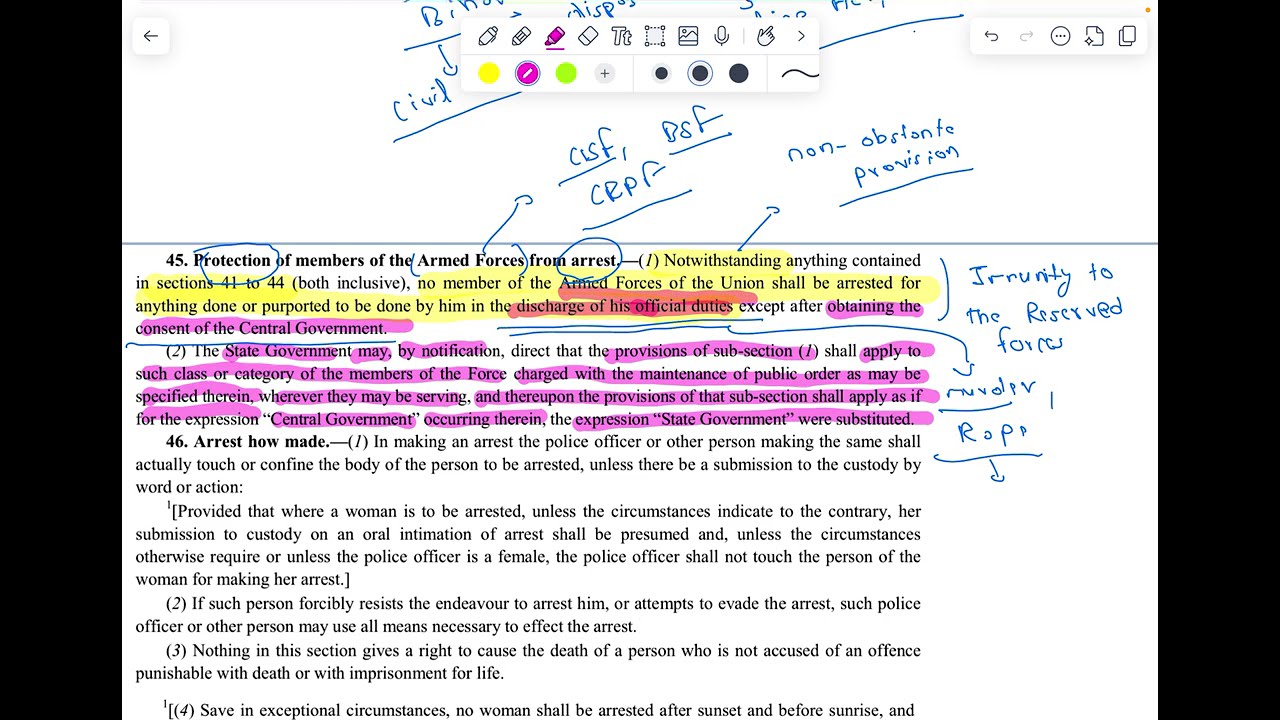 Civil
CISF, BSF
CRPF
non-obstante
provision
45. Protection of members of the Armed Forces from arrest.—(1) Notwithstanding anything contained
in sections 41 to 44 (both inclusive), no member of the Armed Forces of the Union shall be arrested for
anything done or purported to be done by him in the discharge of his official duties except after obtaining the
consent of the Central Government.
Immunity to
the Reserved
forces
(2) The State Government may, by notification, direct that the provisions of sub-section (1) shall apply to
such class or category of the members of the Force charged with the maintenance of public order as may be
specified therein, wherever they may be serving, and thereupon the provisions of that sub-section shall apply as if
for the expression “Central Government” occurring therein, the expression “State Government” were substituted.
murder
46. Arrest how made.—(1) In making an arrest the police officer or other person making the same shall
actually touch or confine the body of the person to be arrested, unless there be a submission to the custody by
word or action:
1[Provided that where a woman is to be arrested, unless the circumstances indicate to the contrary, her
submission to custody on an oral intimation of arrest shall be presumed and, unless the circumstances
otherwise require or unless the police officer is a female, the police officer shall not touch the person of the
woman for making her arrest.]
(2) If such person forcibly resists the endeavour to arrest him, or attempts to evade the arrest, such police
officer or other person may use all means necessary to effect the arrest.
(3) Nothing in this section gives a right to cause the death of a person who is not accused of an offence
punishable with death or with imprisonment for life.
1[(4) Save in exceptional circumstances, no woman shall be arrested after sunset and before sunrise, and